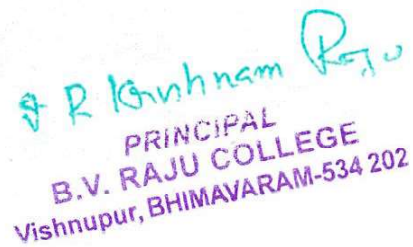 R Krishnam Raju
PRINCIPAL
B.V. RAJU COLLEGE
Vishnupur, BHIMAVARAM-534 202